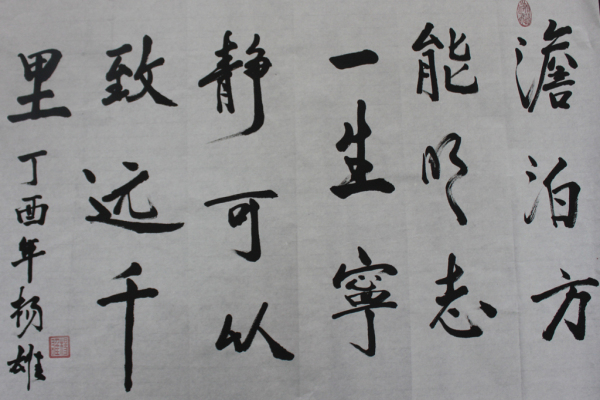 澹泊方
能明志
一生寧
静可以
致远千
里
丁酉年杨雄